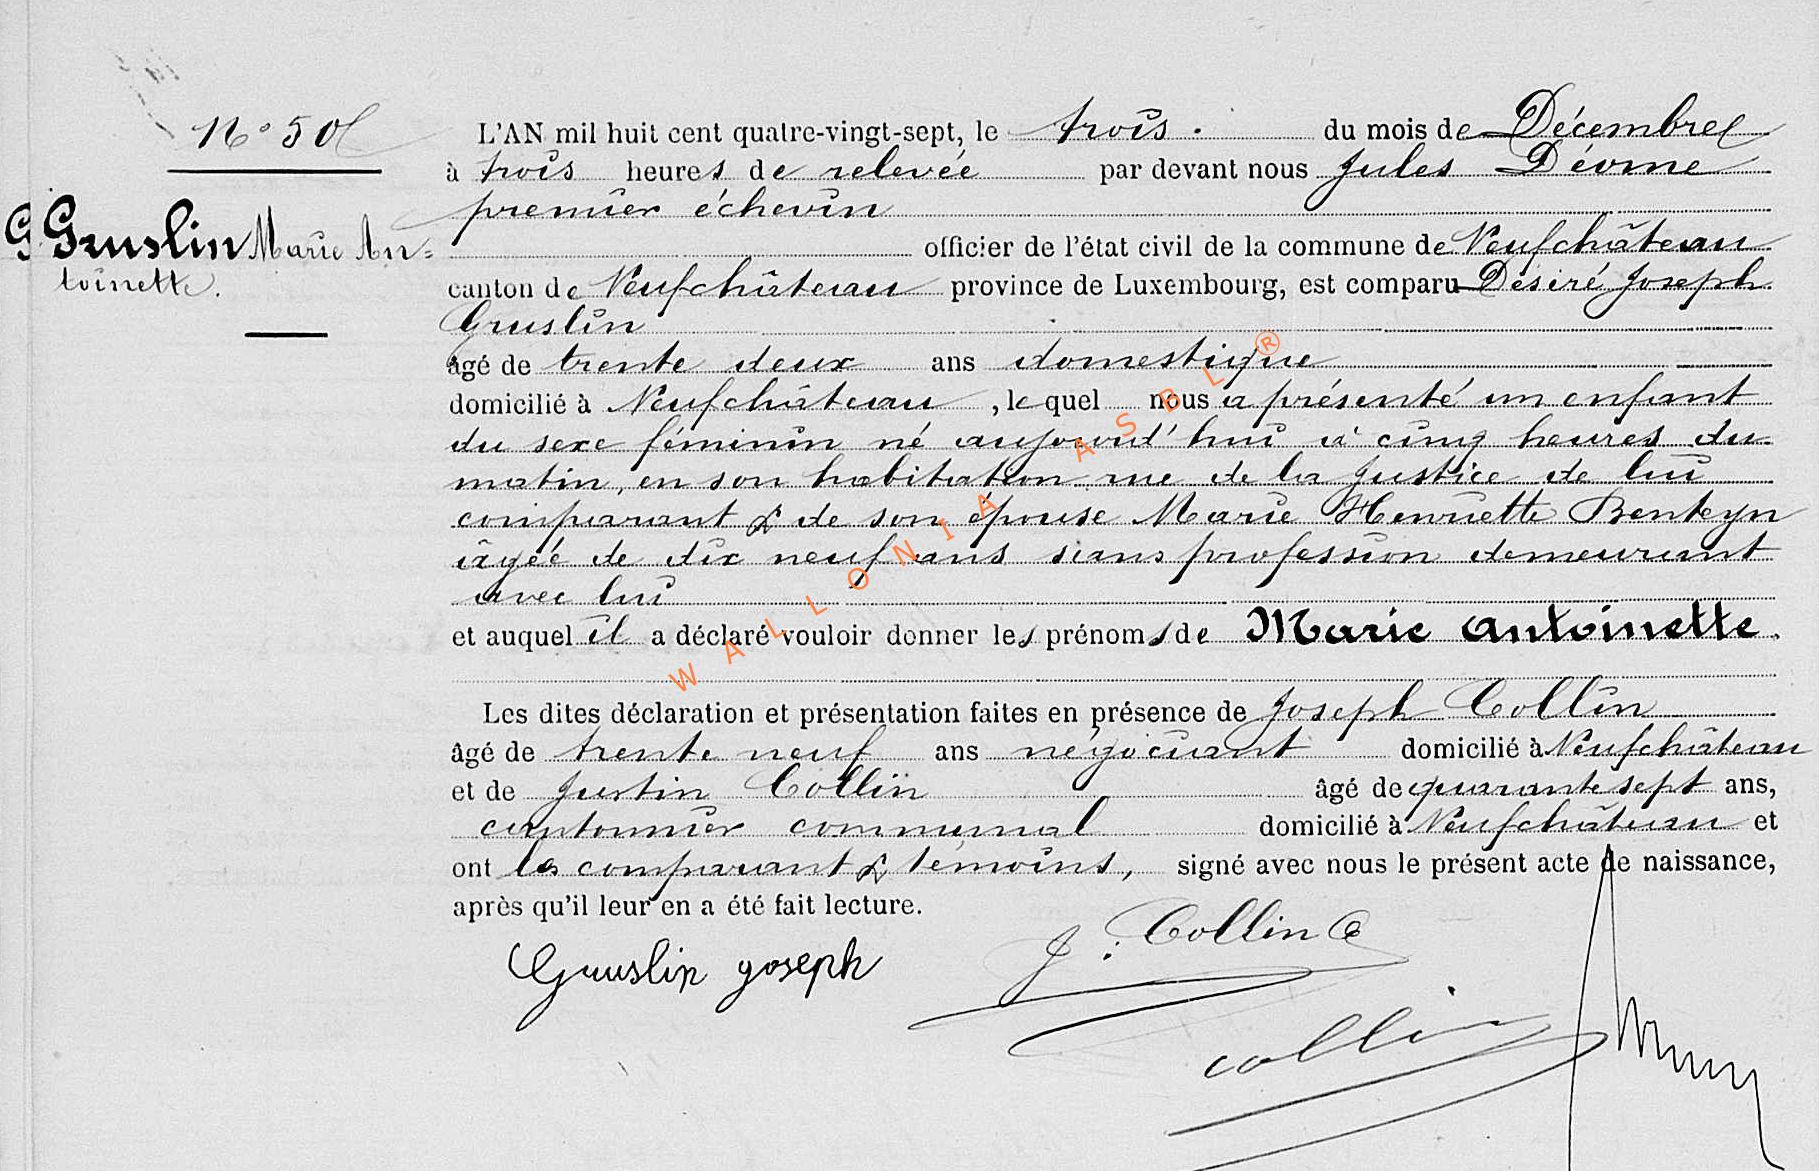 N° 50
Gruslin Marie An=
toinette.
L'AN mil huit cent quatre-vingt-sept, le trois . du mois de Décembre
à trois heures de relevée par devant nous Jules Déome
premier échevin
officier de l'état civil de la commune de Neufchâteau
canton de Neufchâteau province de Luxembourg, est comparu Désiré Joseph
Gruslin
âgé de trente deux ans domestique
domicilié à Neufchâteau , le quel nous a présenté un enfant
du sexe féminin né aujourd'hui à cinq heures du
matin, en son habitation rue de la Justice de lui
comparant & de son épouse Marie Henriette Benteyn
âgée de dix neuf ans sans profession demeurant
avec lui
et auquel il a déclaré vouloir donner les prénoms de Marie Antoinette.
Les dites déclaration et présentation faites en présence de Joseph Collin
âgé de trente neuf ans négociant domicilié à Neufchâteau
et de Justin Collin âgé de quarante sept ans,
cantonnier communal domicilié à Neufchâteau et
ont les comparant & témoins, signé avec nous le présent acte de naissance,
après qu'il leur en a été fait lecture.
Gruslin joseph
J. Collin
collin
WALLONIA ASBL ®